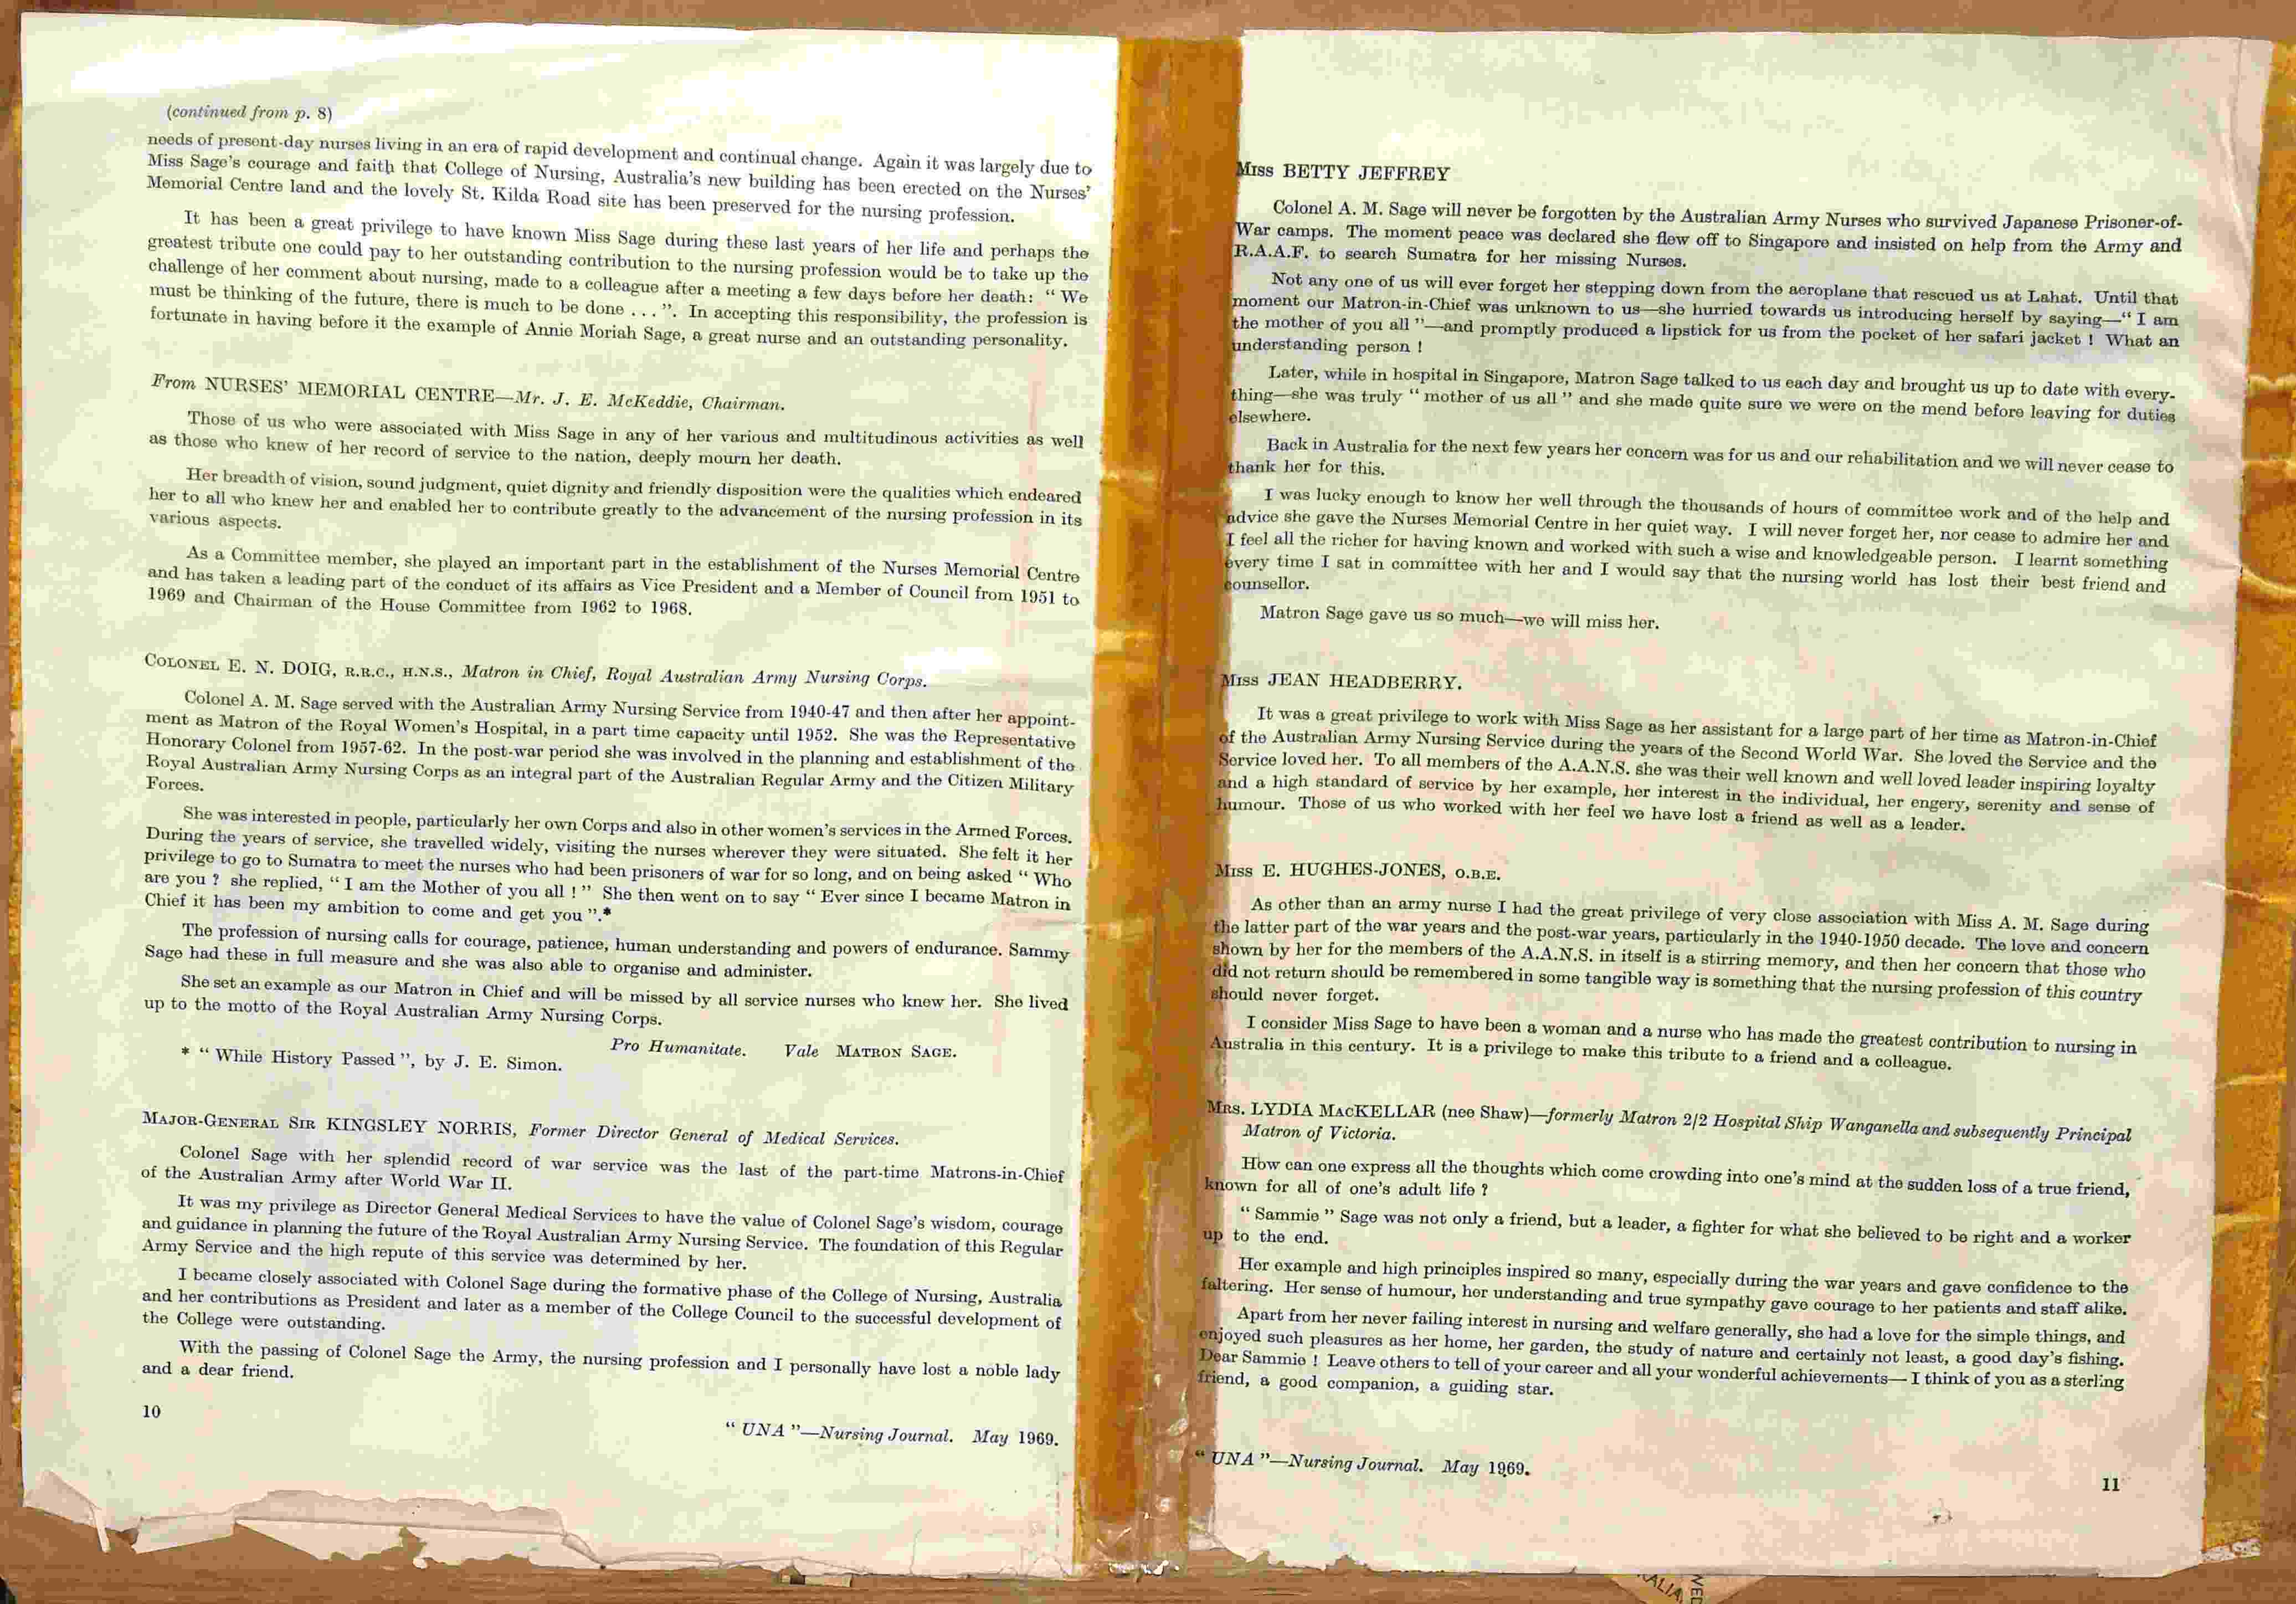 (continued from p. 8)
needs of present-day nurses living in an era of rapid development and continual change. Again it was largely due to
Miss Sage's courage and faith that College of Nursing, Australia's new building has been erected on the Nurses'
Memorial Centre land and the lovely St. Kilda Road site has been preserved for the nursing profession.
It has been a great privilege to have known Miss Sage during these last years of her life and perhaps the
greatest tribute one could pay to her outstanding contribution to the nursing profession would be to take up the
challenge of her comment about nursing, made to a colleague after a meeting a few days before her death: “ We
must be thinking of the future, there is much to be done . . . ”. In accepting this responsibility, the profession is
fortunate in having before it the example of Annie Moriah Sage, a great nurse and an outstanding personality.
From NURSES' MEMORIAL CENTRE—Mr. J. E. McKeddie, Chairman.
Those of us who were associated with Miss Sage in any of her various and multitudinous activities as well
as those who knew of her record of service to the nation, deeply mourn her death.
Her breadth of vision, sound judgment, quiet dignity and friendly disposition were the qualities which endeared
her to all who knew her and enabled her to contribute greatly to the advancement of the nursing profession in its
various aspects.
As a Committee member, she played an important part in the establishment of the Nurses Memorial Centre
and has taken a leading part of the conduct of its affairs as Vice President and a Member of Council from 1951 to
1969 and Chairman of the House Committee from 1962 to 1968.
COLONEL E. N. DOIG, R.R.C., H.N.S., Matron in Chief, Royal Australian Army Nursing Corps.
Colonel A. M. Sage served with the Australian Army Nursing Service from 1940-47 and then after her appoint-
ment as Matron of the Royal Women's Hospital, in a part time capacity until 1952. She was the Representative
Honorary Colonel from 1957-62. In the post-war period she was involved in the planning and establishment of the
Royal Australian Army Nursing Corps as an integral part of the Australian Regular Army and the Citizen Military
Forces.
She was interested in people, particularly her own Corps and also in other women's services in the Armed Forces.
During the years of service, she travelled widely, visiting the nurses wherever they were situated. She felt it her
privilege to go to Sumatra to meet the nurses who had been prisoners of war for so long, and on being asked “ Who
are you ? she replied, “ I am the Mother of you all ! ” She then went on to say “ Ever since I became Matron in
Chief it has been my ambition to come and get you ”.*
The profession of nursing calls for courage, patience, human understanding and powers of endurance. Sammy
Sage had these in full measure and she was also able to organise and administer.
She set an example as our Matron in Chief and will be missed by all service nurses who knew her. She lived
up to the motto of the Royal Australian Army Nursing Corps.
Pro Humanitate. Vale MATRON SAGE.
* “ While History Passed ”, by J. E. Simon.
MAJOR-GENERAL SIR KINGSLEY NORRIS, Former Director General of Medical Services.
Colonel Sage with her splendid record of war service was the last of the part-time Matrons-in-Chief
of the Australian Army after World War II.
It was my privilege as Director General Medical Services to have the value of Colonel Sage's wisdom, courage
and guidance in planning the future of the Royal Australian Army Nursing Service. The foundation of this Regular
Army Service and the high repute of this service was determined by her.
I became closely associated with Colonel Sage during the formative phase of the College of Nursing, Australia
and her contributions as President and later as a member of the College Council to the successful development of
the College were outstanding.
With the passing of Colonel Sage the Army, the nursing profession and I personally have lost a noble lady
and a dear friend.
10
“ UNA ”—Nursing Journal. May 1969.
MISS BETTY JEFFREY
Colonel A. M. Sage will never be forgotten by the Australian Army Nurses who survived Japanese Prisoner-of-
War camps. The moment peace was declared she flew off to Singapore and insisted on help from the Army and
R.A.A.F. to search Sumatra for her missing Nurses.
Not any one of us will ever forget her stepping down from the aeroplane that rescued us at Lahat. Until that
moment our Matron-in-Chief was unknown to us—she hurried towards us introducing herself by saying—“ I am
the mother of you all ”—and promptly produced a lipstick for us from the pocket of her safari jacket ! What an
understanding person !
Later, while in hospital in Singapore, Matron Sage talked to us each day and brought us up to date with every-
thing—she was truly “ mother of us all ” and she made quite sure we were on the mend before leaving for duties
elsewhere.
Back in Australia for the next few years her concern was for us and our rehabilitation and we will never cease to
thank her for this.
I was lucky enough to know her well through the thousands of hours of committee work and of the help and
advice she gave the Nurses Memorial Centre in her quiet way. I will never forget her, nor cease to admire her and
I feel all the richer for having known and worked with such a wise and knowledgeable person. I learnt something
every time I sat in committee with her and I would say that the nursing world has lost their best friend and
counsellor.
Matron Sage gave us so much—we will miss her.
MISS JEAN HEADBERRY.
It was a great privilege to work with Miss Sage as her assistant for a large part of her time as Matron-in-Chief
of the Australian Army Nursing Service during the years of the Second World War. She loved the Service and the
Service loved her. To all members of the A.A.N.S. she was their well known and well loved leader inspiring loyalty
and a high standard of service by her example, her interest in the individual, her engery, serenity and sense of
humour. Those of us who worked with her feel we have lost a friend as well as a leader.
MISS E. HUGHES-JONES, O.B.E.
As other than an army nurse I had the great privilege of very close association with Miss A. M. Sage during
the latter part of the war years and the post-war years, particularly in the 1940-1950 decade. The love and concern
shown by her for the members of the A.A.N.S. in itself is a stirring memory, and then her concern that those who
did not return should be remembered in some tangible way is something that the nursing profession of this country
should never forget.
I consider Miss Sage to have been a woman and a nurse who has made the greatest contribution to nursing in
Australia in this century. It is a privilege to make this tribute to a friend and a colleague.
MRS. LYDIA MACKELLAR (nee Shaw)—formerly Matron 2/2 Hospital Ship Wanganella and subsequently Principal
Matron of Victoria.
How can one express all the thoughts which come crowding into one's mind at the sudden loss of a true friend,
known for all of one's adult life ?
“ Sammie ” Sage was not only a friend, but a leader, a fighter for what she believed to be right and a worker
up to the end.
Her example and high principles inspired so many, especially during the war years and gave confidence to the
faltering. Her sense of humour, her understanding and true sympathy gave courage to her patients and staff alike.
Apart from her never failing interest in nursing and welfare generally, she had a love for the simple things, and
enjoyed such pleasures as her home, her garden, the study of nature and certainly not least, a good day's fishing.
Dear Sammie ! Leave others to tell of your career and all your wonderful achievements— I think of you as a sterling
friend, a good companion, a guiding star.
“ UNA ”—Nursing Journal. May 1969.
11